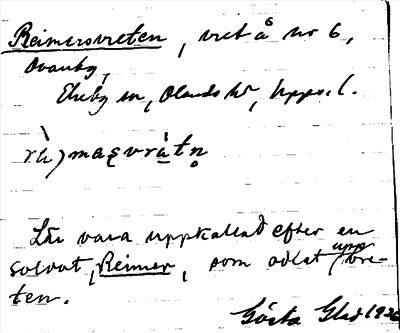 Reimersvreten, vret å nr 6,
Ovanby,
Ekeby sn, Olands hd, Upps. l.
Lär vara uppkallad efter en
soldat, Reimer, som odlat upp vre-
ten.
Gösta